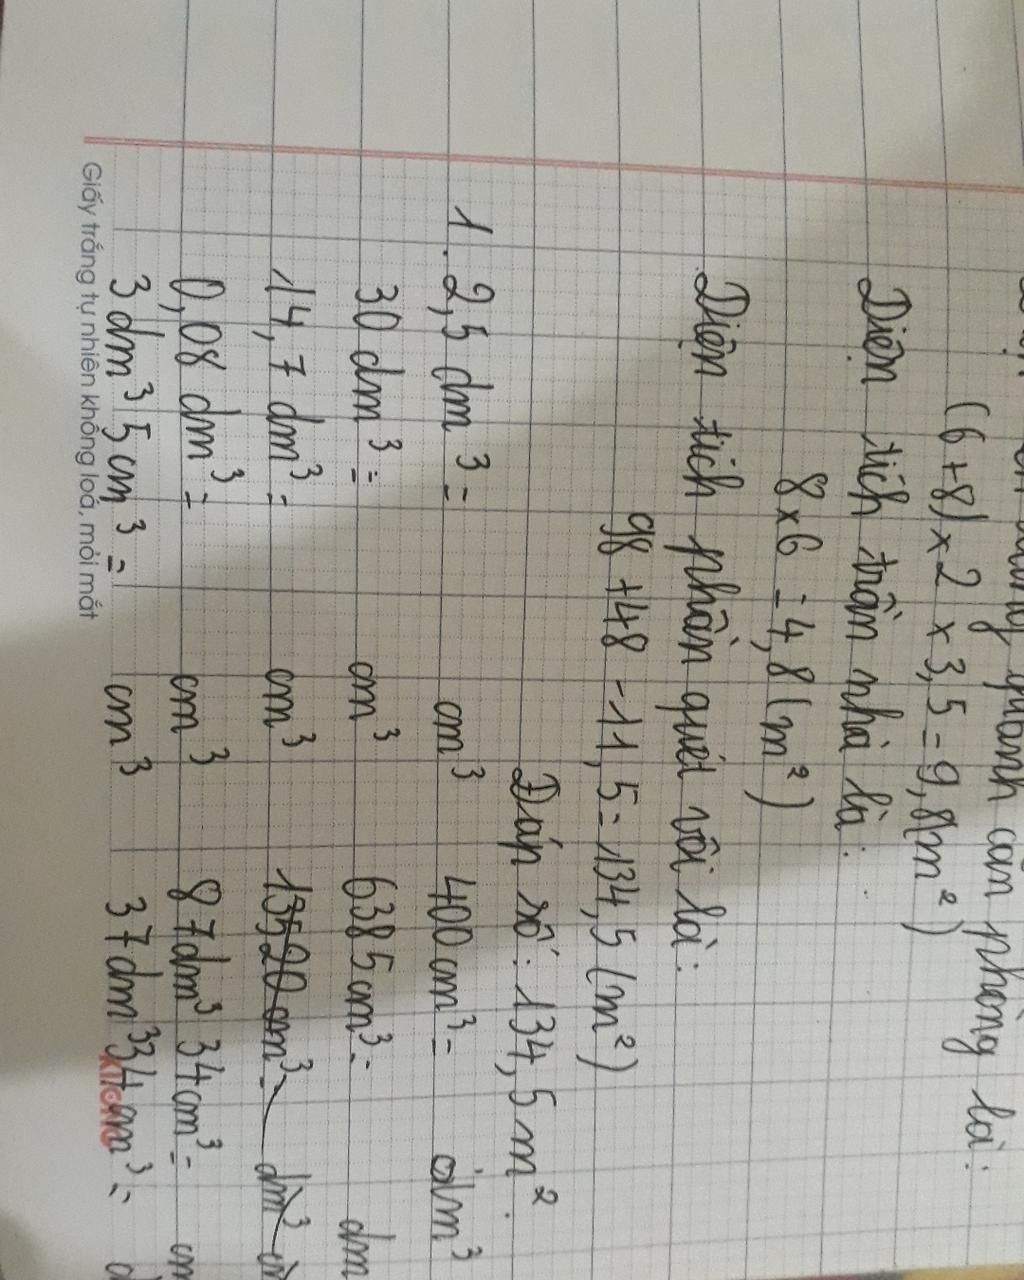 quanh căn phòng là:
(6+8) x 2 x 3,5 = 9,8(m²)
Diện tích trần nhà là:
8 x 6 = 4,8 (m²)
Diện tích phần quét vôi là:
98 + 48 - 11,5 = 134,5 (m²)
Đáp số: 134,5 m².
1. 2,5 dm³ = cm³ 400 cm³ = dm³
30 dm³ = cm³ 6385 cm³ = dm
14,7 dm³ = cm³ 13520 cm³ = dm³
0,08 dm³ = cm³ 87dm³ 34cm³ = cm
3 dm³ 5 cm³ = cm³ 37dm³ 34cm³ =
Giấy trắng tự nhiên không loá, mỏi mắt